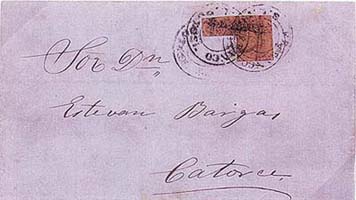 Sor Dn
Estevan Bargas
Catorce.